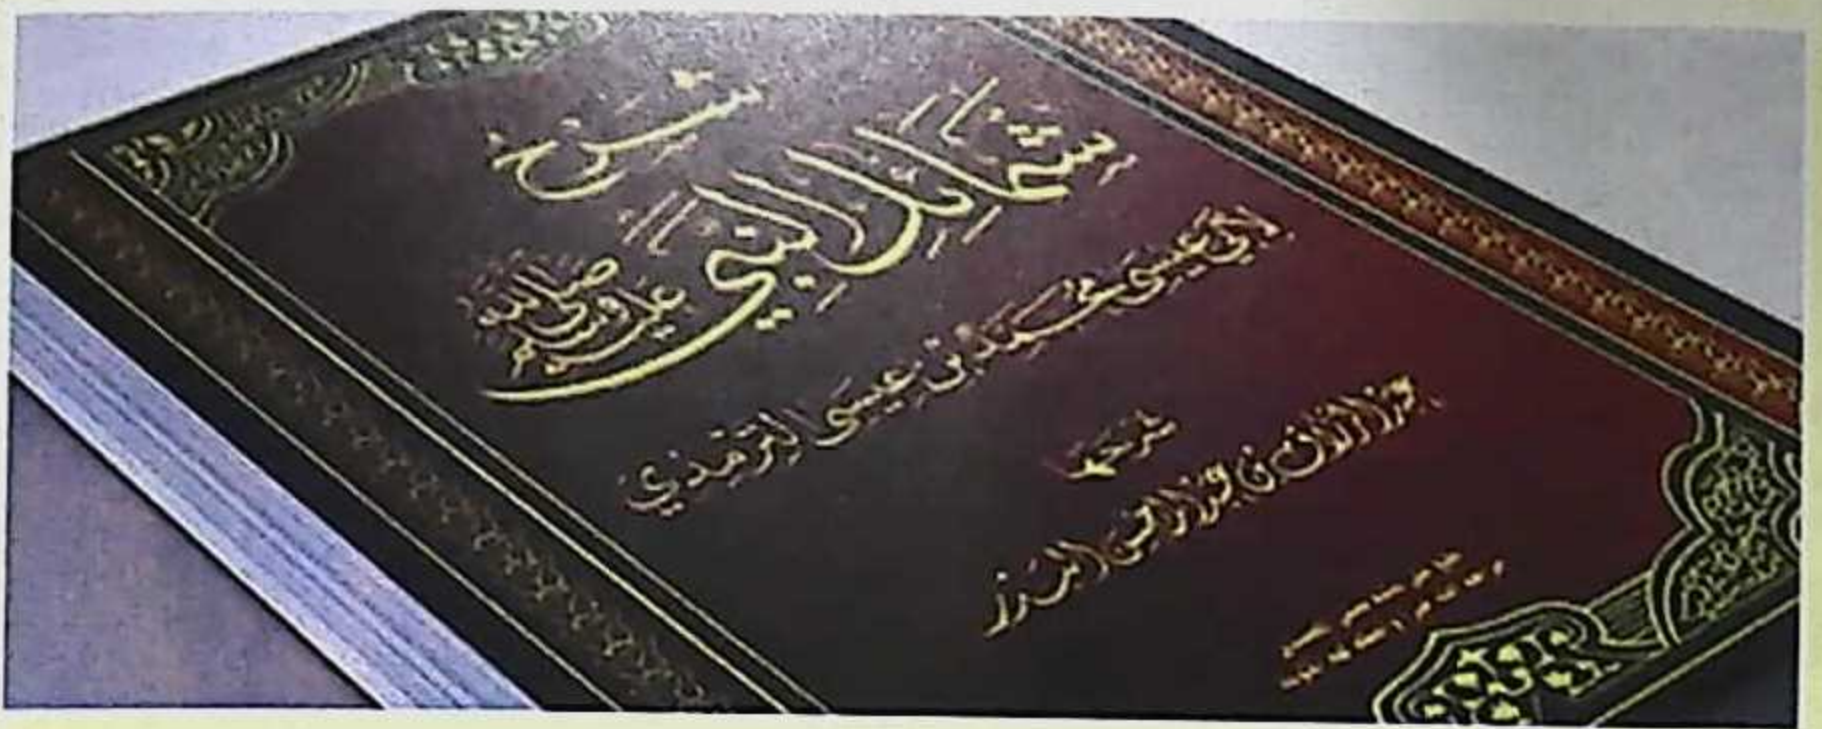 شرح
شمائل النبي
صلى الله عليه وسلم
لأبي عيسى محمد بن عيسى الترمذي
شرحه
عبد الرزاق بن عبد المحسن البدر